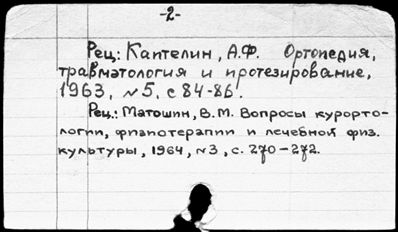 -2-
Рец.: Каптелин, А.Ф. Ортопедия,
травматология и протезирование,
1963, №5, с 84-86.
Рец.: Матошин, В.М. Вопросы курорто-
логии, физиотерапии и лечебной физ.
культуры, 1964, №3, с. 270-272.